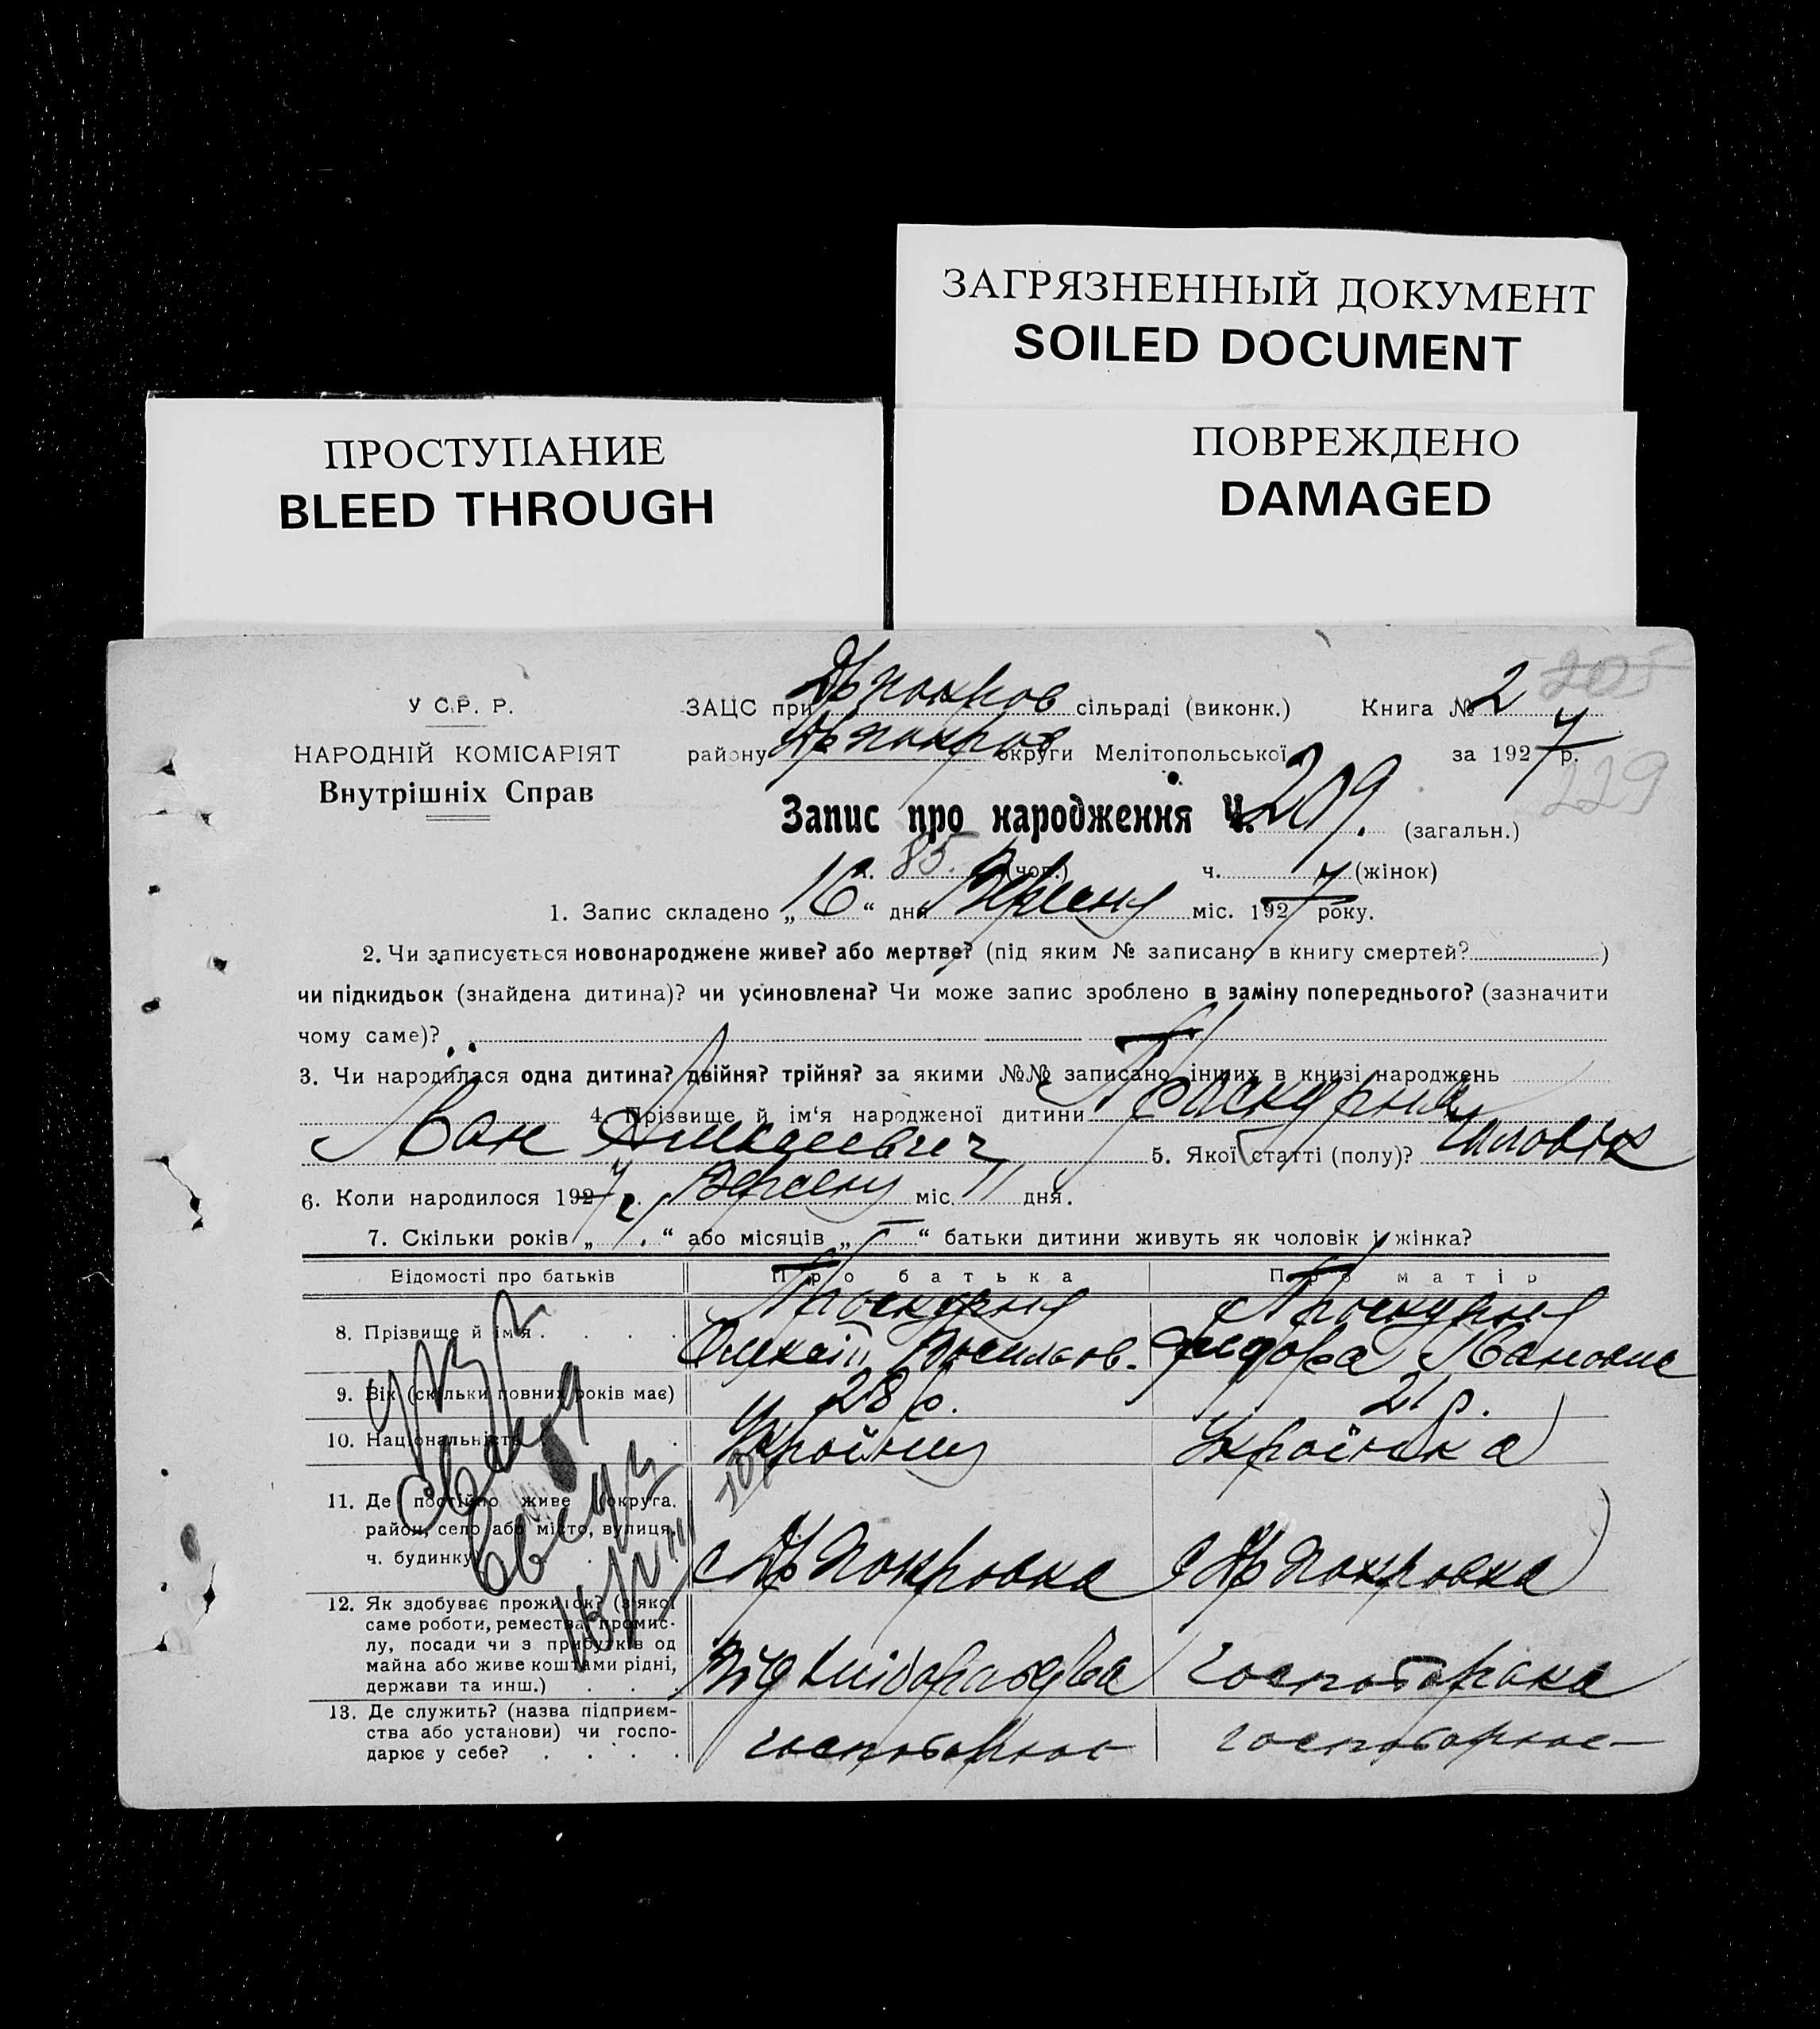 ЗАГРЯЗНЕННЫЙ ДОКУМЕНТ
SOILED DOCUMENT
ПРОСТУПАНИЕ
BLEED THROUGH
ПОВРЕЖДЕНО
DAMAGED
У С.Р. Р.
НАРОДНІЙ КОМІСАРІЯТ
Внутрішніх Справ
ЗАЦС при сільраді (виконк.) Книга № 2 205
району округи Мелітопольської за 1927 р.
229
Запис про народження Ч. 209. (загальн.)
ч. 85. (чол.) ч. (жінок)
1. Запис складено „16“ дня Вересня міс. 1927 року.
2. Чи записується новонароджене живе? або мертве? (під яким № записано в книгу смертей? )
чи підкидьок (знайдена дитина)? чи усиновлена? Чи може запис зроблено в заміну попереднього? (зазначити
чому саме)?
3. Чи народилася одна дитина? двійня? трійня? за якими №№ записано інших в книзі народжень
4. Прізвище й ім‘я народженої дитини Проскурня
Іван 5. Якої статті (полу)? чоловік
6. Коли народилося 1927 р. Вересня міс. 11 дня.
7. Скільки років „ “ або місяців „ “ батьки дитини живуть як чоловік і жінка?
Відомості про батьків Про батька Про матір
8. Прізвище й ім‘я . . . . Проскурня Проскурня
Олексій Васильов. Федора Івановна
9. Вік (скільки повних років має) 28 р. 21 р.
10. Національність Українец Українка
11. Де постійно живе (округа,
район, село або місто, вулиця,
ч. будинку
12. Як здобуває прожиток? (з якої
саме роботи, ремества, промис-
лу, посади чи з прибутків од
майна або живе коштами рідні,
держави та инш.) . . .
13. Де служить? (назва підприєм-
ства або установи) чи госпо-
дарює у себе? . . . . господарює господарює